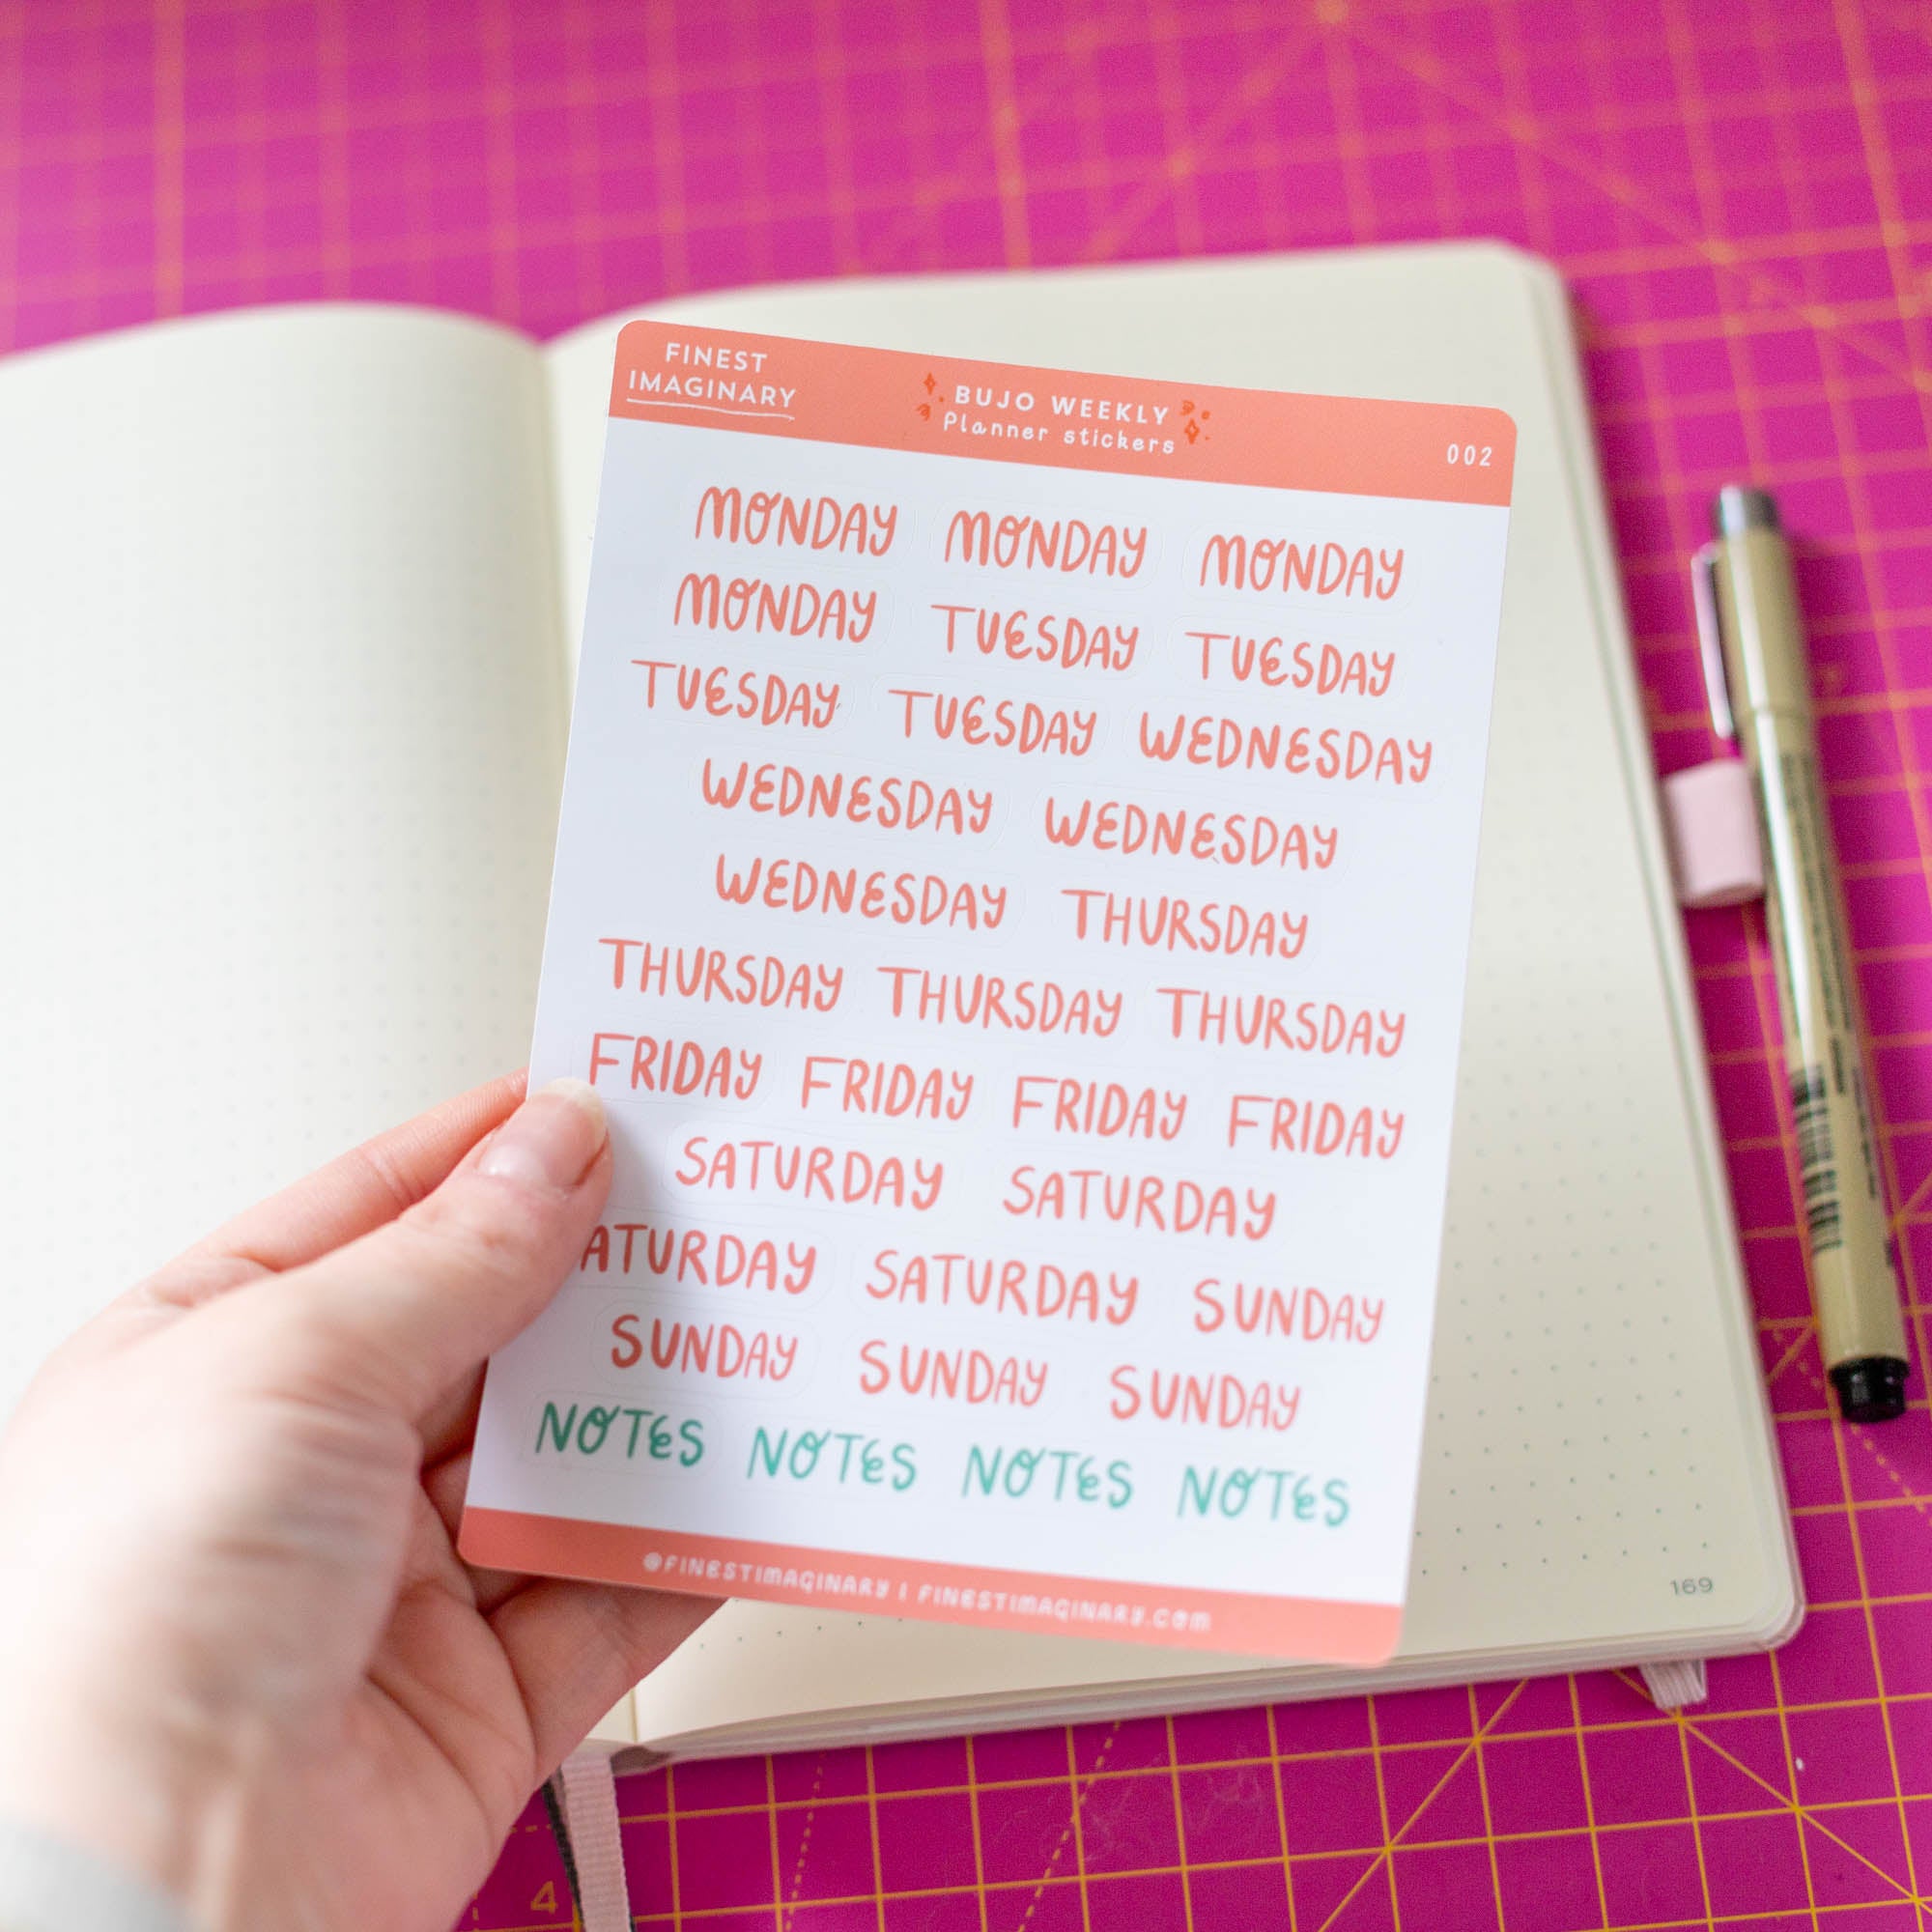 FINEST
IMAGINARY
BUJO WEEKLY
Planner stickers
002
MONDAY MONDAY MONDAY
MONDAY TUESDAY TUESDAY
TUESDAY TUESDAY WEDNESDAY
WEDNESDAY WEDNESDAY
WEDNESDAY THURSDAY
THURSDAY THURSDAY THURSDAY
FRIDAY FRIDAY FRIDAY FRIDAY
SATURDAY SATURDAY
ATURDAY SATURDAY SUNDAY
SUNDAY SUNDAY SUNDAY
NOTES NOTES NOTES NOTES
@FINESTIMAGINARY | FINESTIMAGINARY.COM
169
4